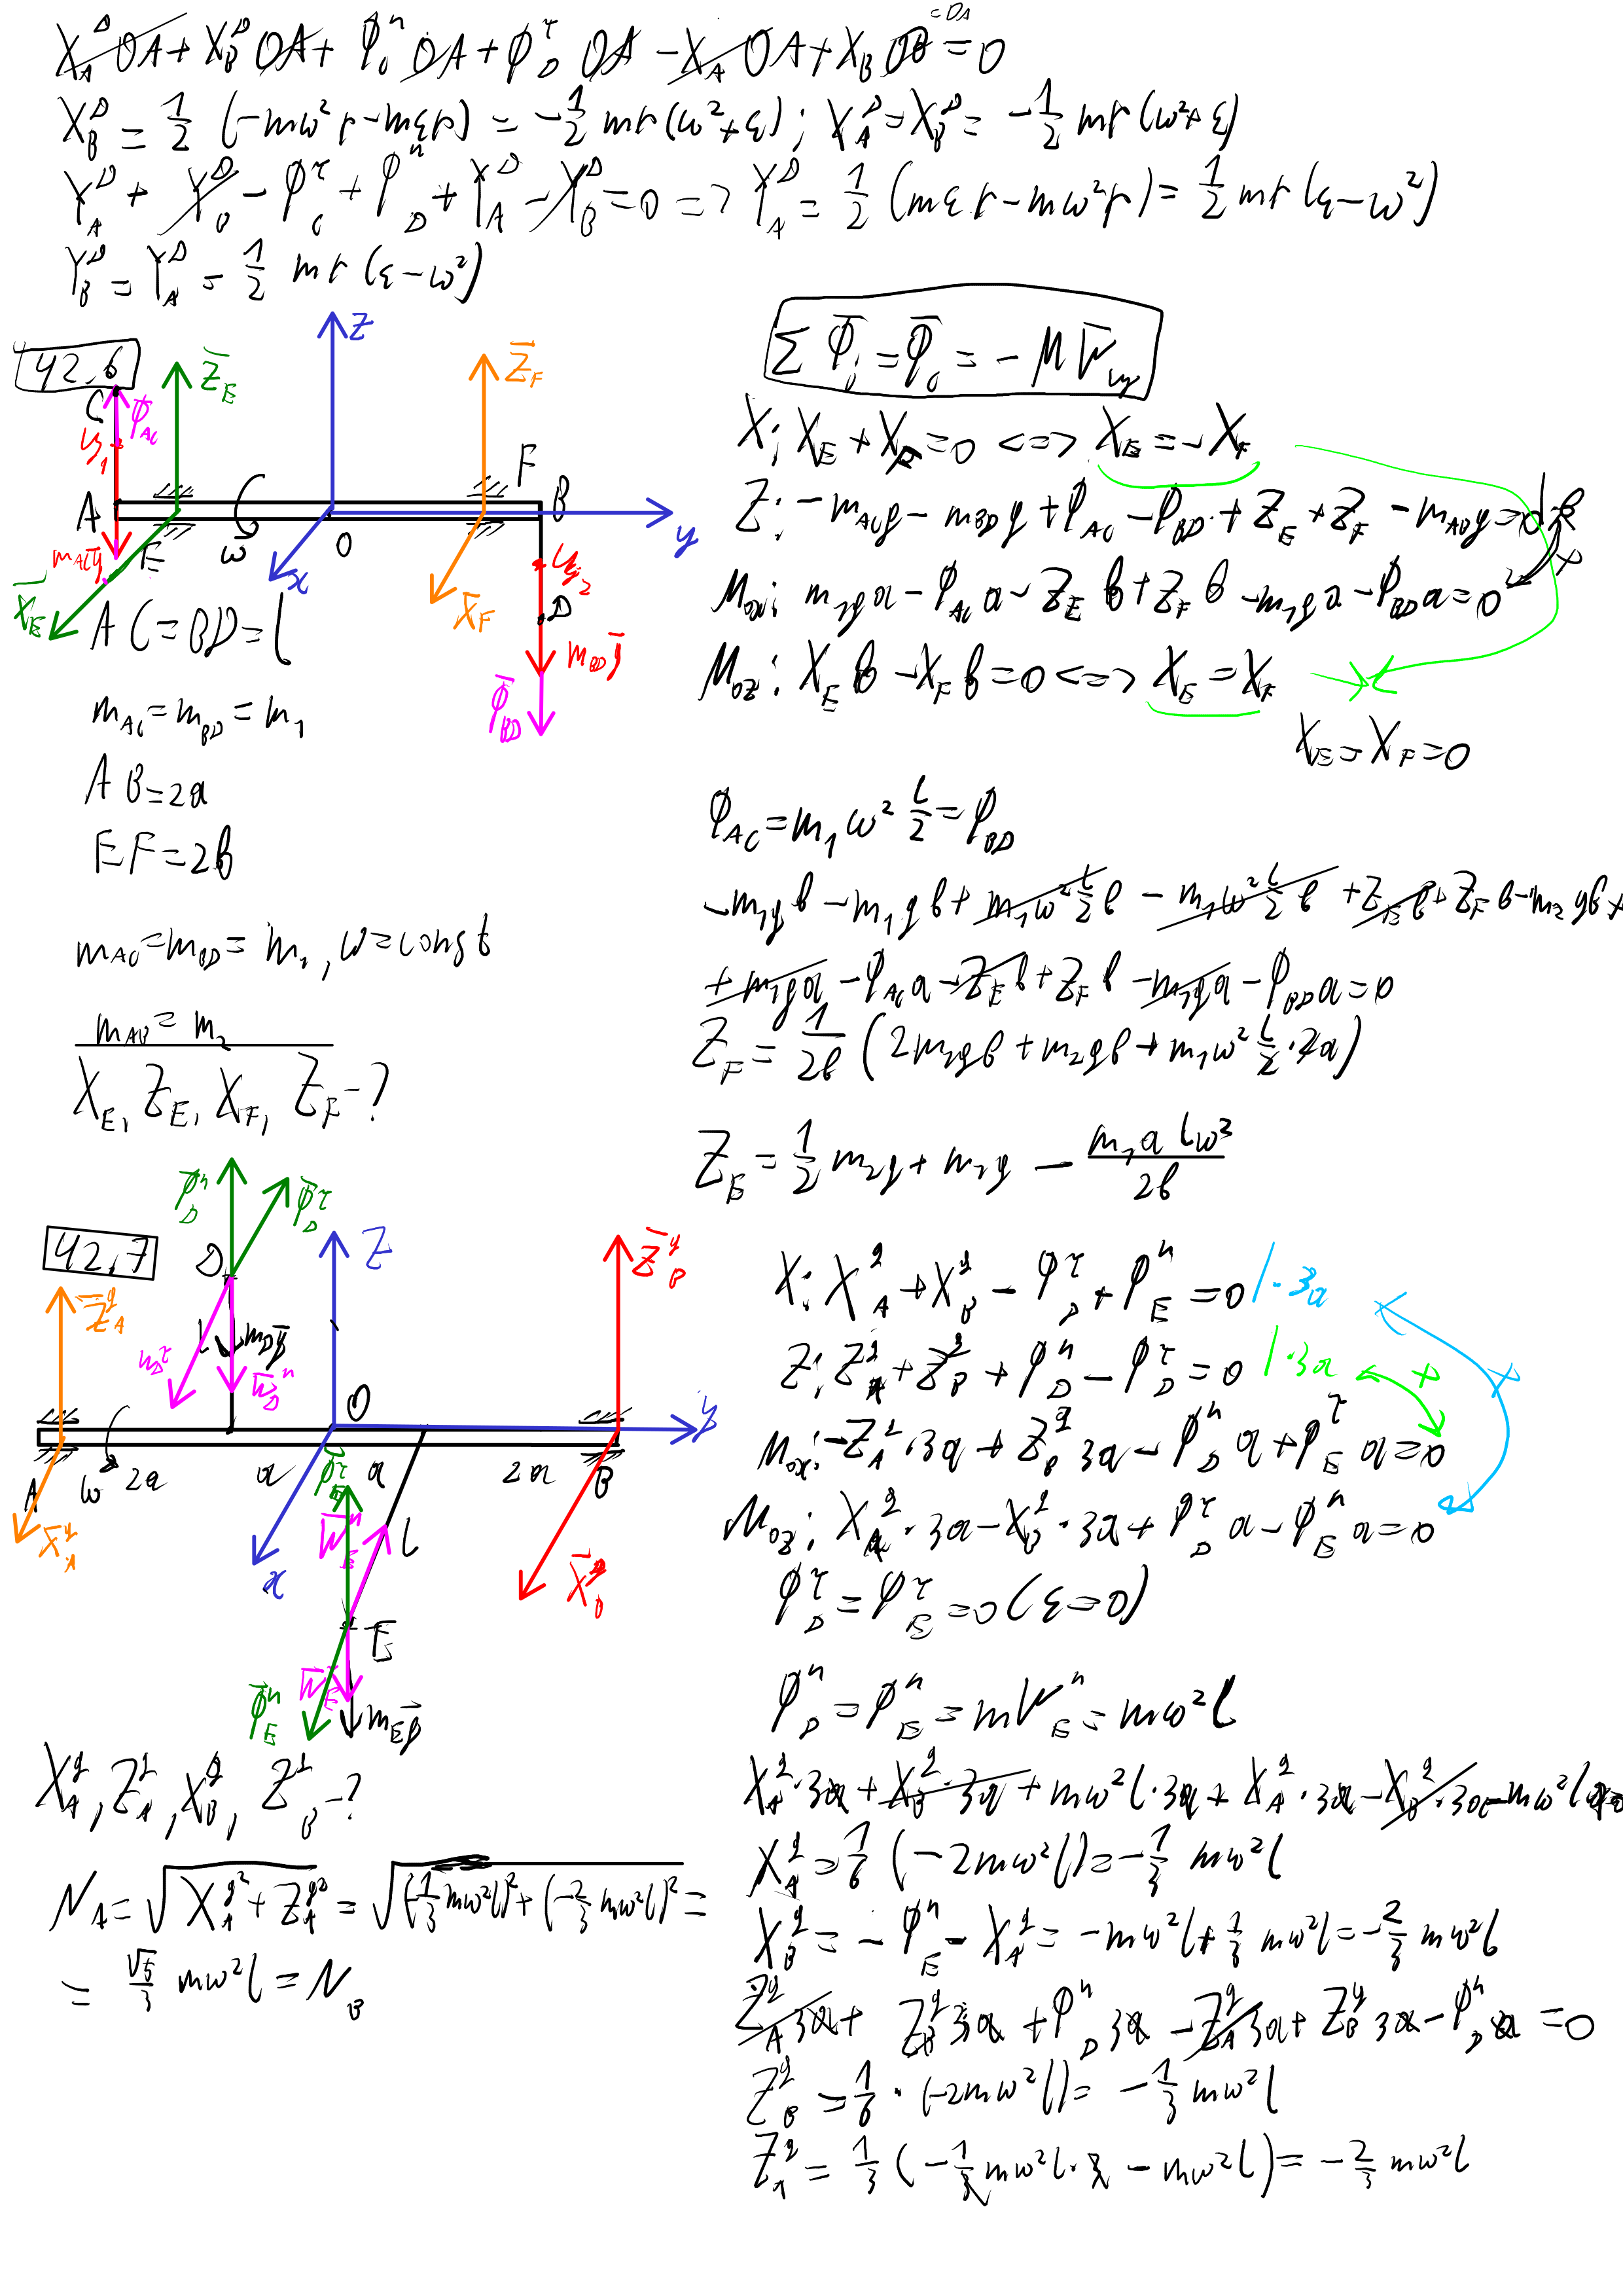 X_A^D OA + X_B^D OA + Φ_C^n OA + Φ_D^τ OA − X_A OA + X_B OB = 0
=OA
X_B^D = 1/2 (−mω²r − mεr) = −1/2 mr(ω²+ε); X_A^D = X_B^D = −1/2 mr(ω²+ε)
Y_A^D + Y_B^D − Φ_C^τ + Φ_D^n + Y_A^D − Y_B^D = 0 => Y_A^D = 1/2 (mεr − mω²r) = 1/2 mr(ε−ω²)
Y_B^D = Y_A^D = 1/2 mr(ε−ω²)
42.6
C
Φ̄_AC
Z̄_E
Z
Z̄_F
F
A
B
E
ω
O
y
x
m_AC ḡ
X̄_E
X̄_F
D
m_BD ḡ
Φ̄_BD
AC = BD = l
m_AC = m_BD = m_1
AB = 2a
EF = 2b
m_AC = m_BD = m_1, ω = const
m_AB = m_2
X_E, Z_E, X_F, Z_F − ?
Σ Φ̄_i = Φ̄_0 = −M W̄_ц
X: X_E + X_F = 0 <=> X_E = −X_F
Z: −m_AC g − m_BD g + Φ_AC − Φ_BD + Z_E + Z_F − m_AB g = 0 |·b
M_ox: m_1 g a − Φ_AC a − Z_E b + Z_F b − m_1 g a − Φ_BD a = 0
+
M_oz: X_E b − X_F b = 0 <=> X_E = X_F
X_E = X_F = 0
Φ_AC = m_1 ω² l/2 = Φ_BD
−m_1 g b − m_1 g b + m_1 ω² l/2 b − m_1 ω² l/2 b + Z_E b + Z_F b − m_2 g b +
+ m_1 g a − Φ_AC a − Z_E b + Z_F b − m_1 g a − Φ_BD a = 0
Z_F = 1/2b (2m_1 g b + m_2 g b + m_1 ω² l/2 · 2a)
Z_E = 1/2 m_2 g + m_1 g − m_1 a l ω²/2b
42.7
Φ̄_D^n
Φ̄_D^τ
D
Z
Z̄_B^g
Z̄_A^g
l
m_D ḡ
W̄_D^τ
W̄_D^n
O
y
A
ω
2a
a
Φ̄_E^τ
a
2a
B
X̄_A^g
x
W̄_E^n
l
X̄_B^g
E
W̄_E^τ
Φ̄_E^n
m_E ḡ
X_A^g, Z_A^g, X_B^g, Z_B^g − ?
N_A = √(X_A^g² + Z_A^g²) = √((−1/3 mω²l)² + (−2/3 mω²l)²) =
= √5/3 mω²l = N_B
X: X_A^g + X_B^g − Φ_D^τ + Φ_E^n = 0 |·3a
Z: Z_A^g + Z_B^g + Φ_D^n − Φ_D^τ = 0 |·3a
+
+
M_ox: −Z_A^g · 3a + Z_B^g 3a − Φ_D^n a + Φ_E^τ a = 0
M_oz: X_A^g · 3a − X_B^g · 3a + Φ_D^τ a − Φ_E^n a = 0
Φ_D^τ = Φ_E^τ = 0 (ε = 0)
Φ_D^n = Φ_E^n = mW_E^n = mω²l
X_A^g · 3a + X_B^g · 3a + mω²l · 3a + X_A^g · 3a − X_B^g · 3a − mω²l a = 0
X_A^g = 1/6 (−2mω²l) = −1/3 mω²l
X_B^g = −Φ_E^n − X_A^g = −mω²l + 1/3 mω²l = −2/3 mω²l
Z_A^g 3a + Z_B^g 3a + Φ_D^n 3a − Z_A^g 3a + Z_B^g 3a − Φ_D^n a = 0
Z_B^g = 1/6 · (−2mω²l) = −1/3 mω²l
Z_A^g = 1/3 (−1/3 mω²l · 3 − mω²l) = −2/3 mω²l